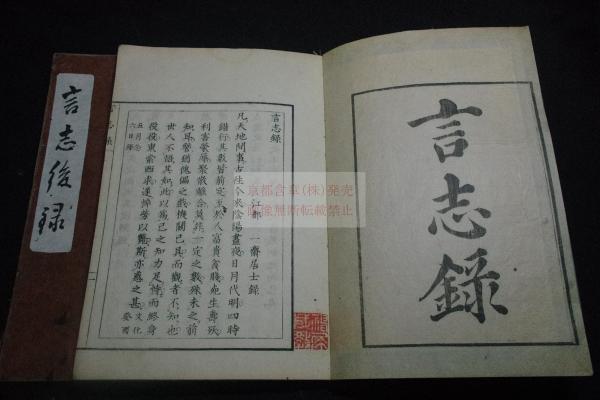 言志錄
言志錄
江都 一齋居士錄
凡天地間事古往今來陰陽晝夜日月代明四時
錯行其數皆前定至於人富貴貧賤死生壽殀
利害榮辱聚散離合莫非一定之數殊未之前
知耳譬猶傀儡之戲機關已具而觀者不知也
世人不悟其如此以爲己之知力足恃而終身
役役東索西求遂悴勞以斃斯亦惑之甚 文化癸酉
五月念六日錄
言志後錄
京都含章(株)発売
画像無断転載禁止